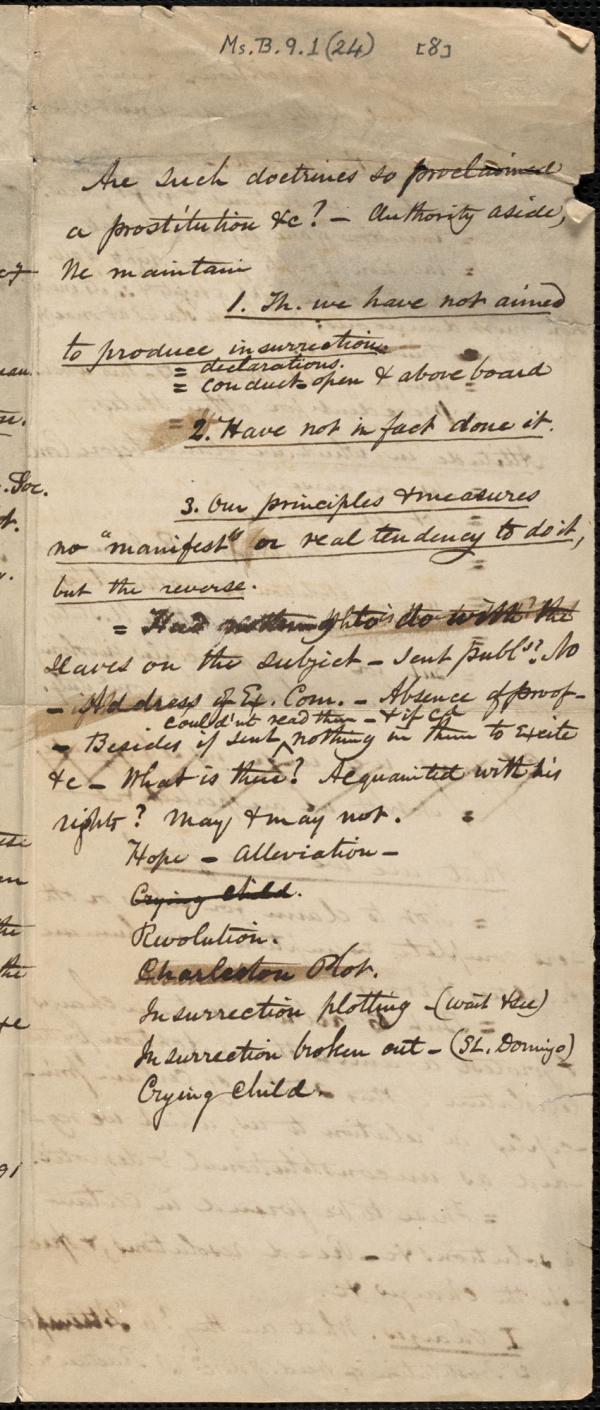 Ms. B. 9. 1 (24) [8]
Are such doctrines so proclaimed
a prostitution &c? – Authority aside,
We maintain
1. Th. we have not aimed
to produce insurrection.
= declarations.
= conduct open & above board
2. Have not in fact done it.
3. Our principles & measures
no "manifest" or real tendency to do it,
but the reverse.
= Had nothing to do with the
slaves on the subject – Sent publs? No
– Address of Ex. Com. – Absence of proof –
couldn't read them – & if cd
– Besides if sent, nothing in them to excite
&c – What is there? Acquainted with his
rights? May & may not.
Hope – Alleviation –
Crying child.
Revolution.
Charleston Plot.
Insurrection plotting – (wait & see)
Insurrection broken out – (St. Domingo)
Crying Child.